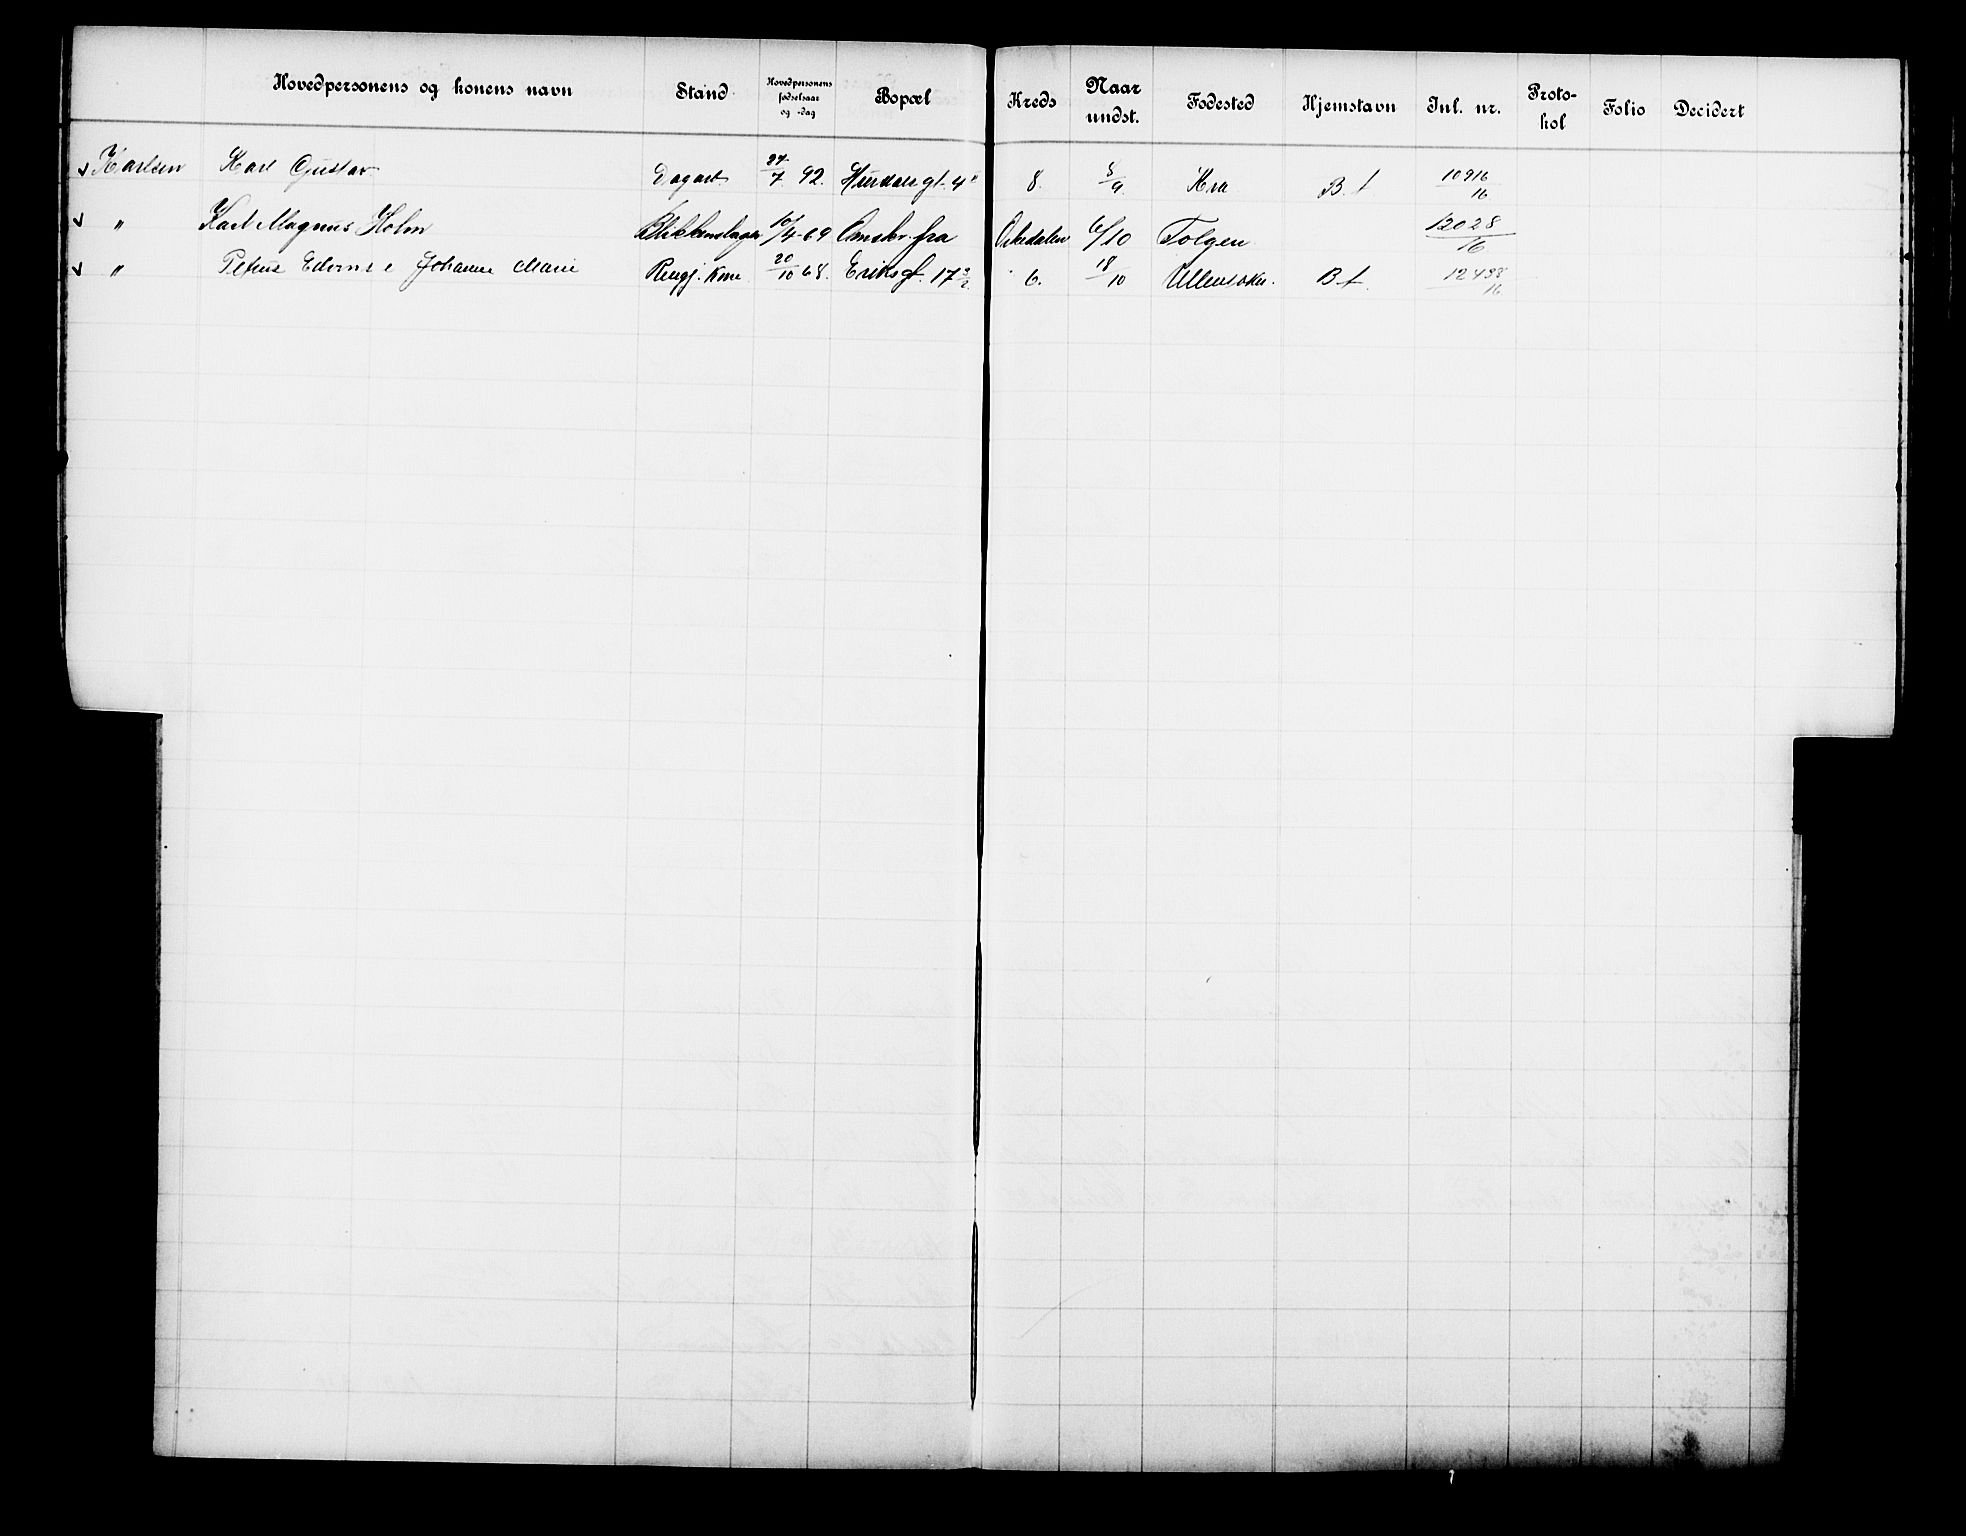 Hovedpersonens og konens navn Stand Hovedpersonens fødselsaar og -dag Bopæl Kreds Naar undst. Fødested Hjemstavn Inl. nr. Protokol Folio Decidert
Karlsen Karl Gustav Dagarb 27/7 92. Hurdalsgt. 4" 8. 5/9. Kra B. f 10916/16
" Karl Magnus Holm Blikkenslager 10/4-69 Omskr. fra Orkedalen 6/10 Tolgen 12028/16
" Petrus Edv. Johanne Marie Rengj. Kone 20/10 68. Eriksgt. 17 6. 18/10 Ullensaker. B f. 12498/16